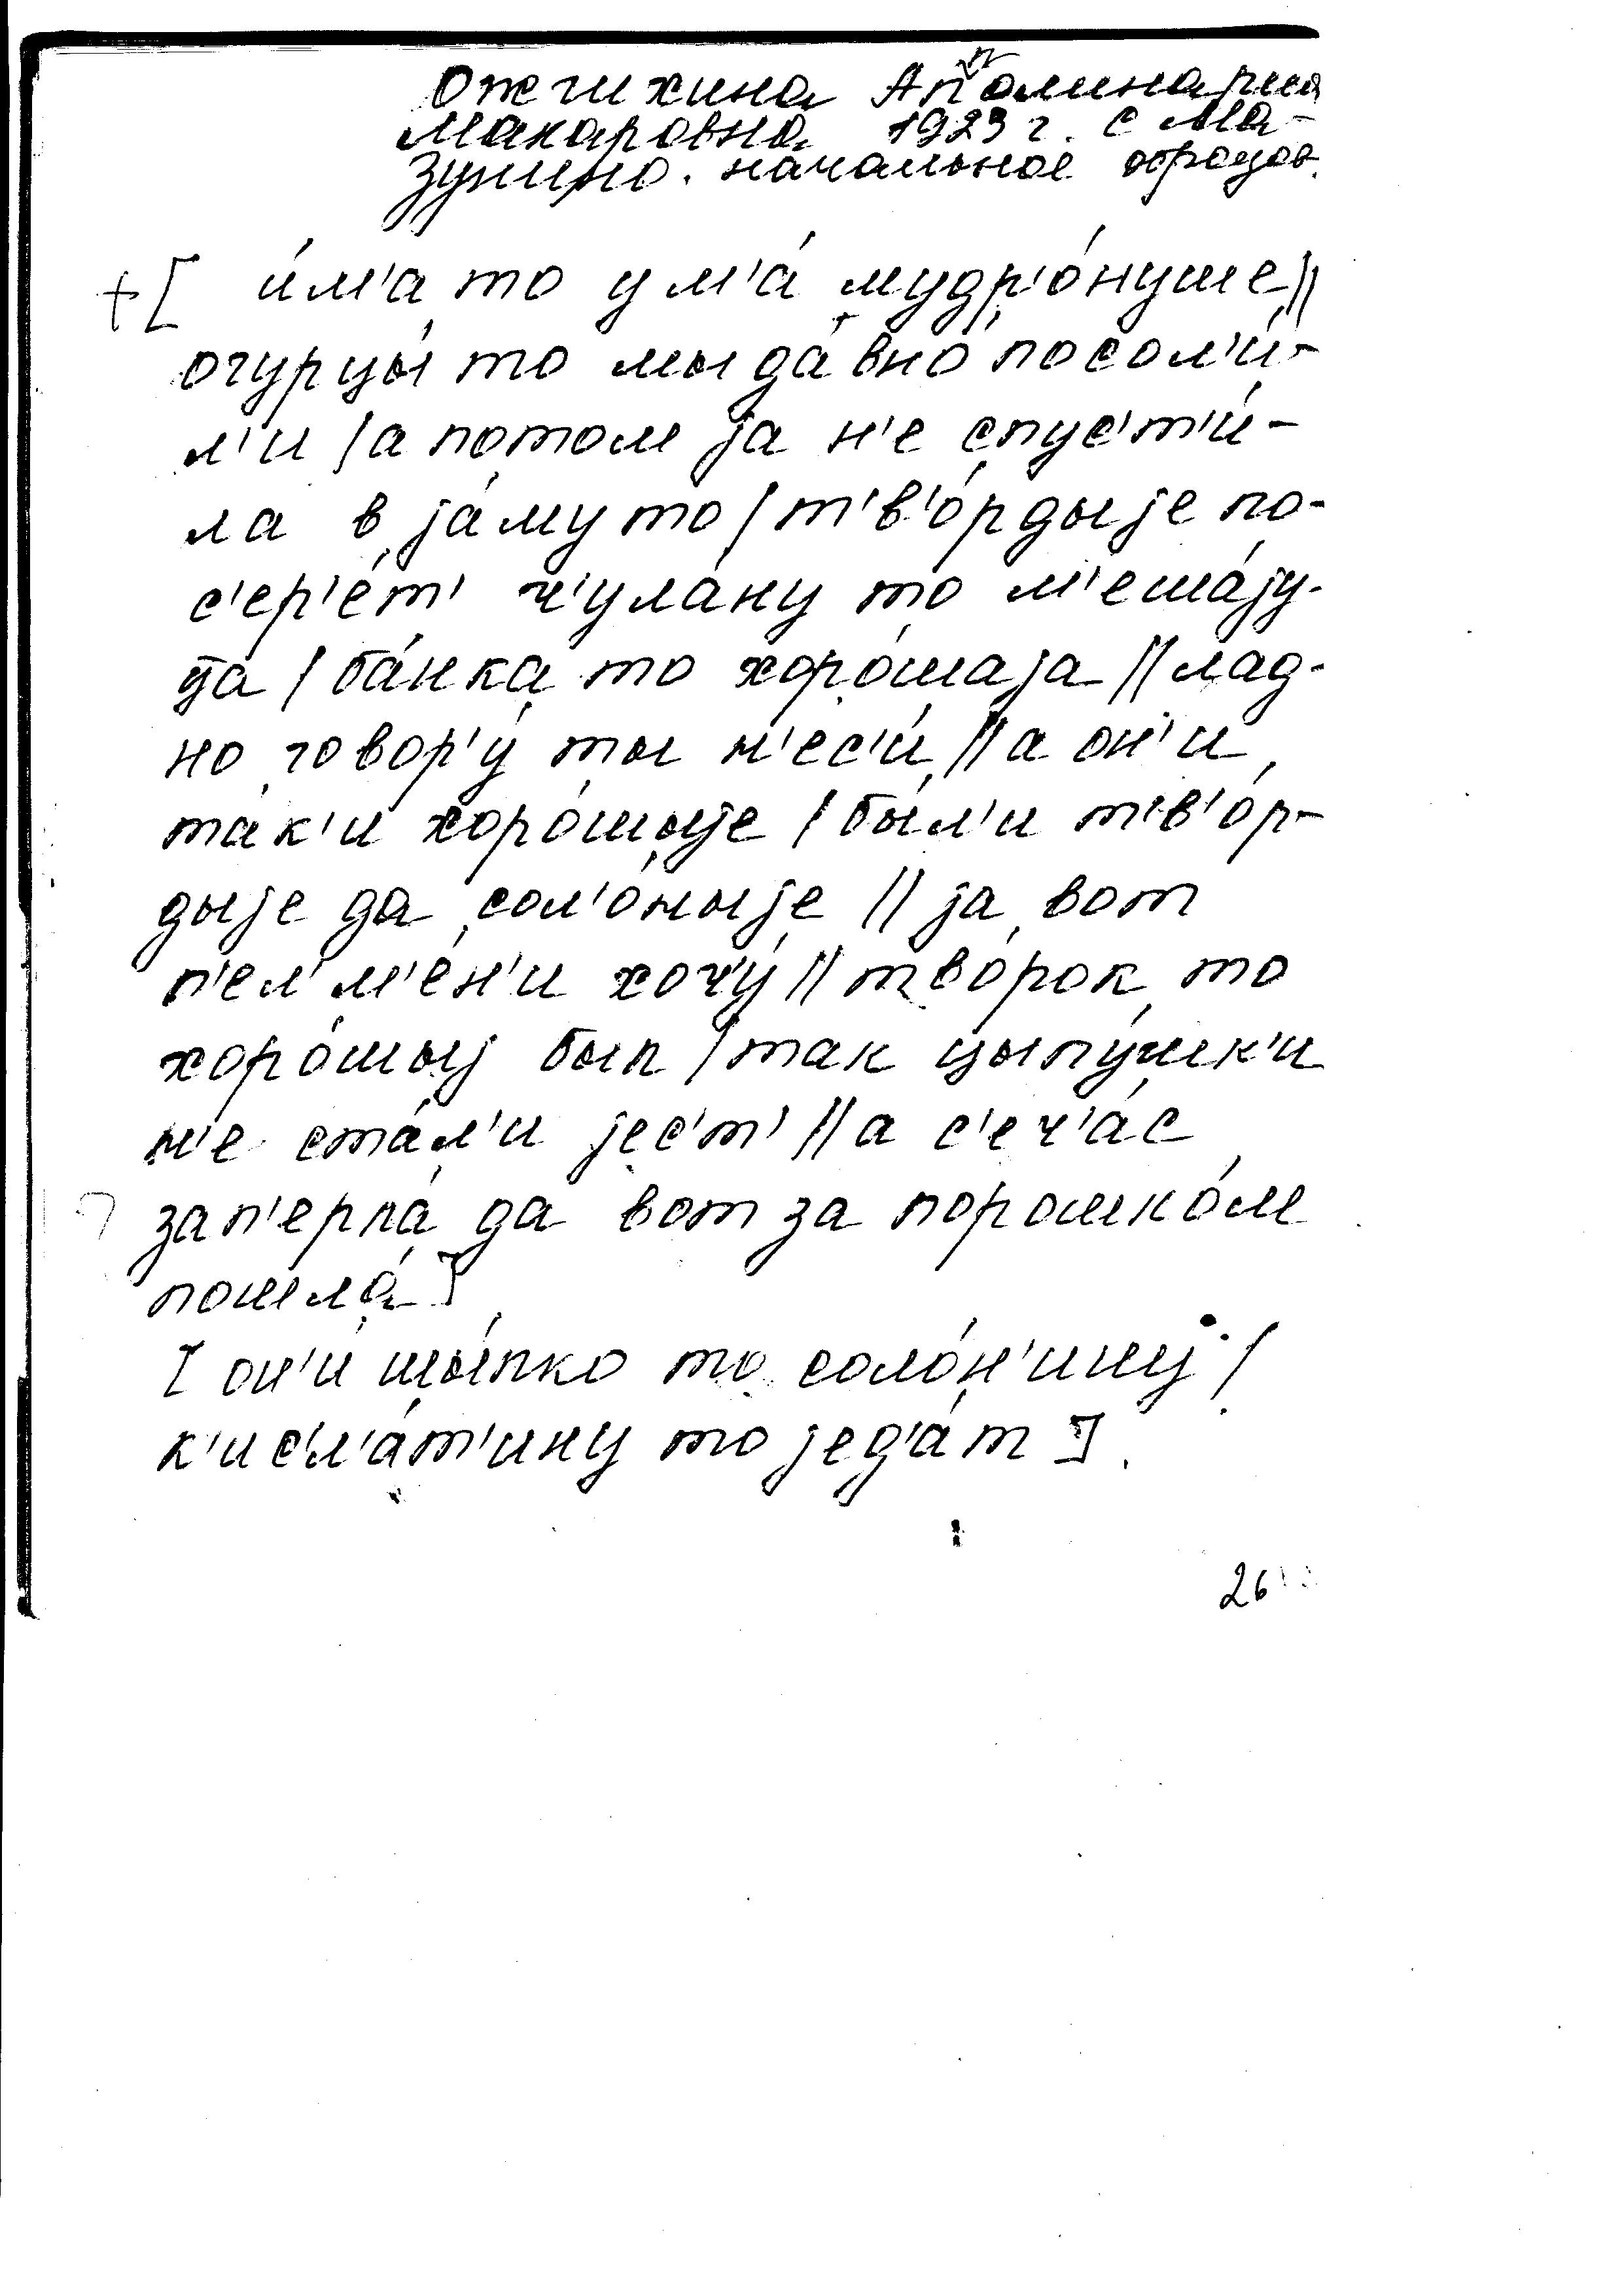 Ожгихина Аполинария
Макаровна 1923 г. с Ма-
зунино. начальное образов.
+[ и́м'а то у м'а́ мудр'о́нуше ||
огурцы́ то мы давно́ посол'и́-
л'и | а потом jа н'е спус'т'и́-
ла в jа́му то | т'в'о́рдыjе по-
с'ер'е́т' ч'ула́ну то м'еша́jу-
ца | ба́нка то хоро́шаjа || лад-
но говор'у́ ты н'ес'и́ || а он'и
та́к'и хоро́шыjе | бы́л'и т'в'о́р-
дыjе да сол'о́ныjе || jа вот
п'ел'м'е́н'и хоч'у́ || тво́рок то
хоро́шыj был | так цыпу́шк'и
н'е ста́л'и jес'т' || а с'еч'а́с
зап'ерла́ да вот за порошко́м
пошла́ ]
[ он'и́ шы́пко то соло́н'ину |
к'ис'л'а́т'ину то jед'а́т ].
26